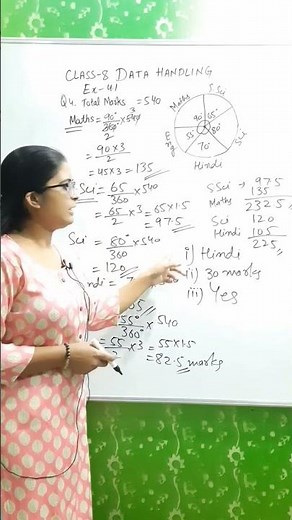 CLASS-8 DATA HANDLING
Ex-4.1
Q4. Total Marks = 540
Maths = 90°/360° × 540 3
2
= 90×3/2
= 45×3 = 135
S.Sci = 65/360 × 540
= 65/2 × 3 = 65×1.5
= 97.5
Sci = 80°/360 × 540
= 120
55°/360° × 540
= 55/2 × 3 = 55×1.5
= 82.5 marks
Maths
S.Sci
90° 65°
55° 80°
70°
Eng
Sci
Hindi
SSci → 97.5
Maths 135
232.5
Sci 120
Hindi 105
225
i) Hindi
ii) 30 marks
iii) Yes